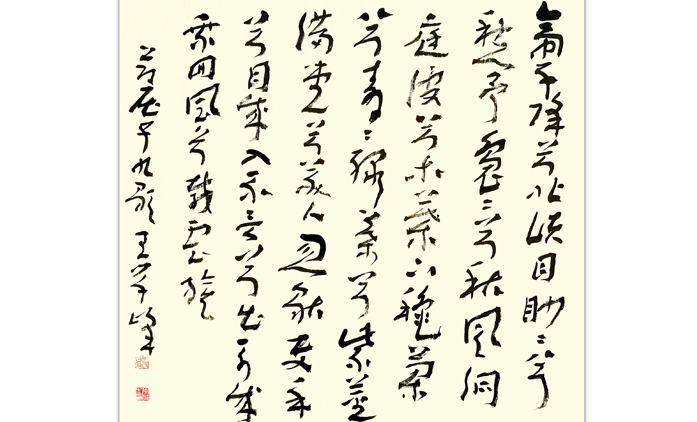 帝子降兮北渚目眇〻兮
愁予裊〻兮秋風洞
庭波兮木葉下穐蘭
兮青〻綠葉兮紫莖
滿堂兮美人忽獨與余
兮目成入不言兮出不辭
乘回風兮載雲旗
節屈子九歌王學